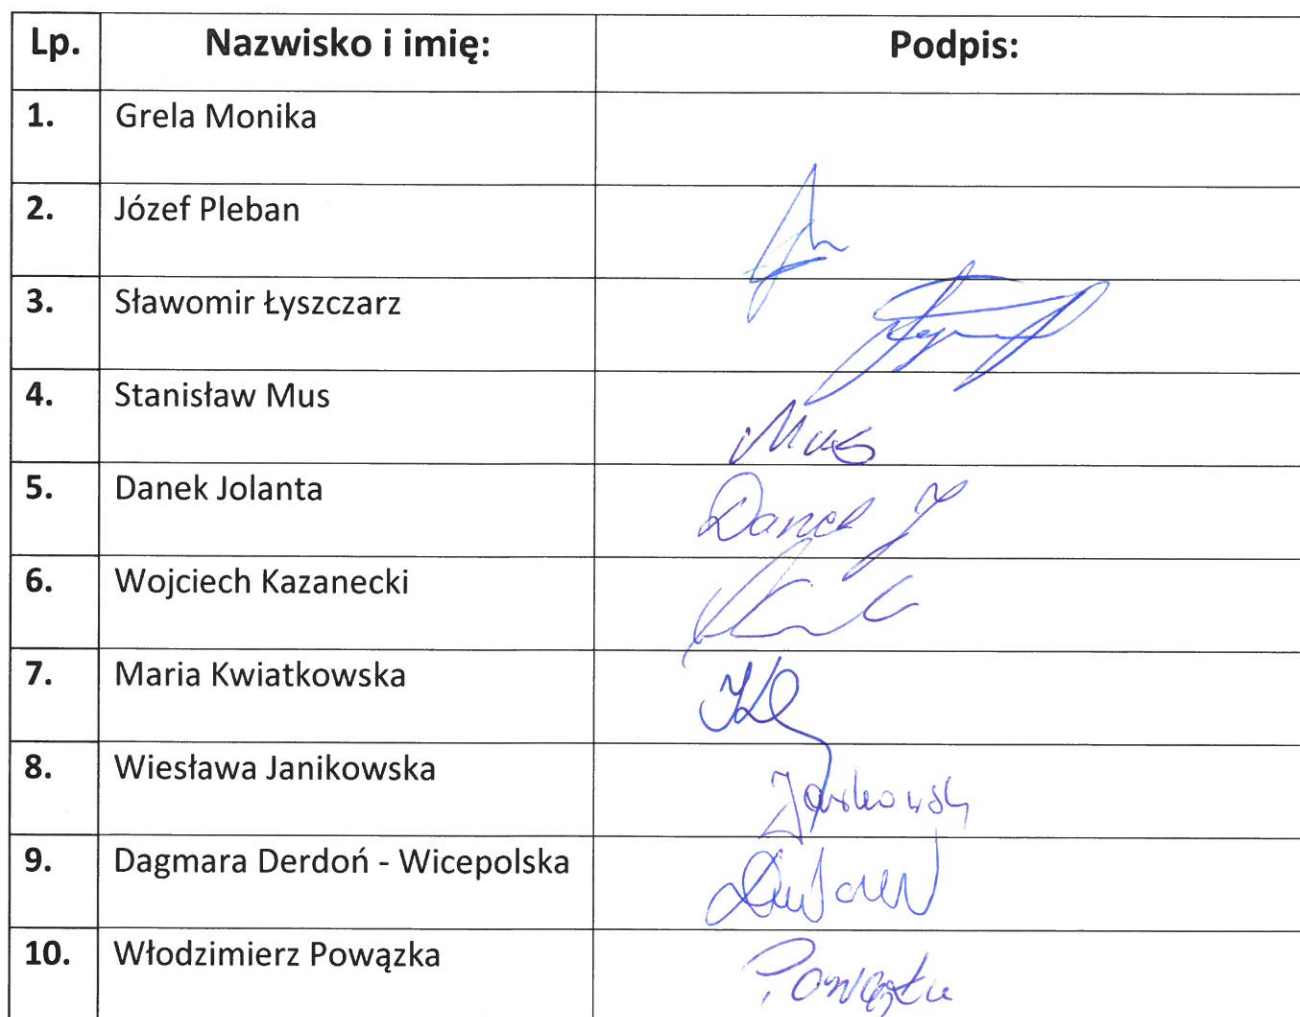 Lp. Nazwisko i imię: Podpis:
1. Grela Monika
2. Józef Pleban
3. Sławomir Łyszczarz
4. Stanisław Mus Mus
5. Danek Jolanta Danek J
6. Wojciech Kazanecki
7. Maria Kwiatkowska
8. Wiesława Janikowska
9. Dagmara Derdoń - Wicepolska
10. Włodzimierz Powązka Powązka